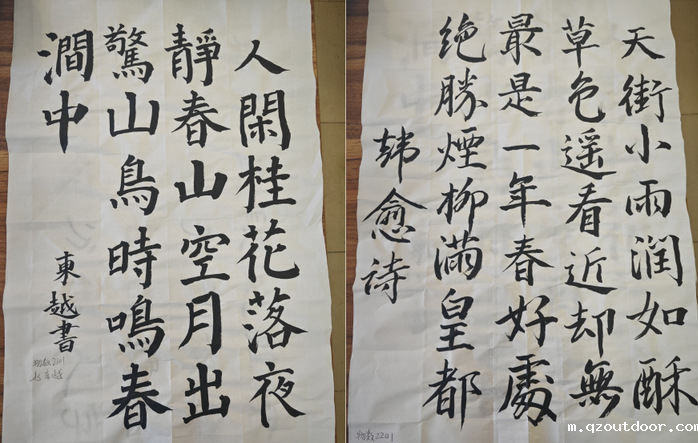 人閑桂花落夜
靜春山空月出
驚山鳥時鳴春
澗中
東越書
天街小雨润如酥
草色遥看近却無
最是一年春好處
绝勝煙柳滿皇都
韩愈诗
物教2201
m.qzoutdoor.com